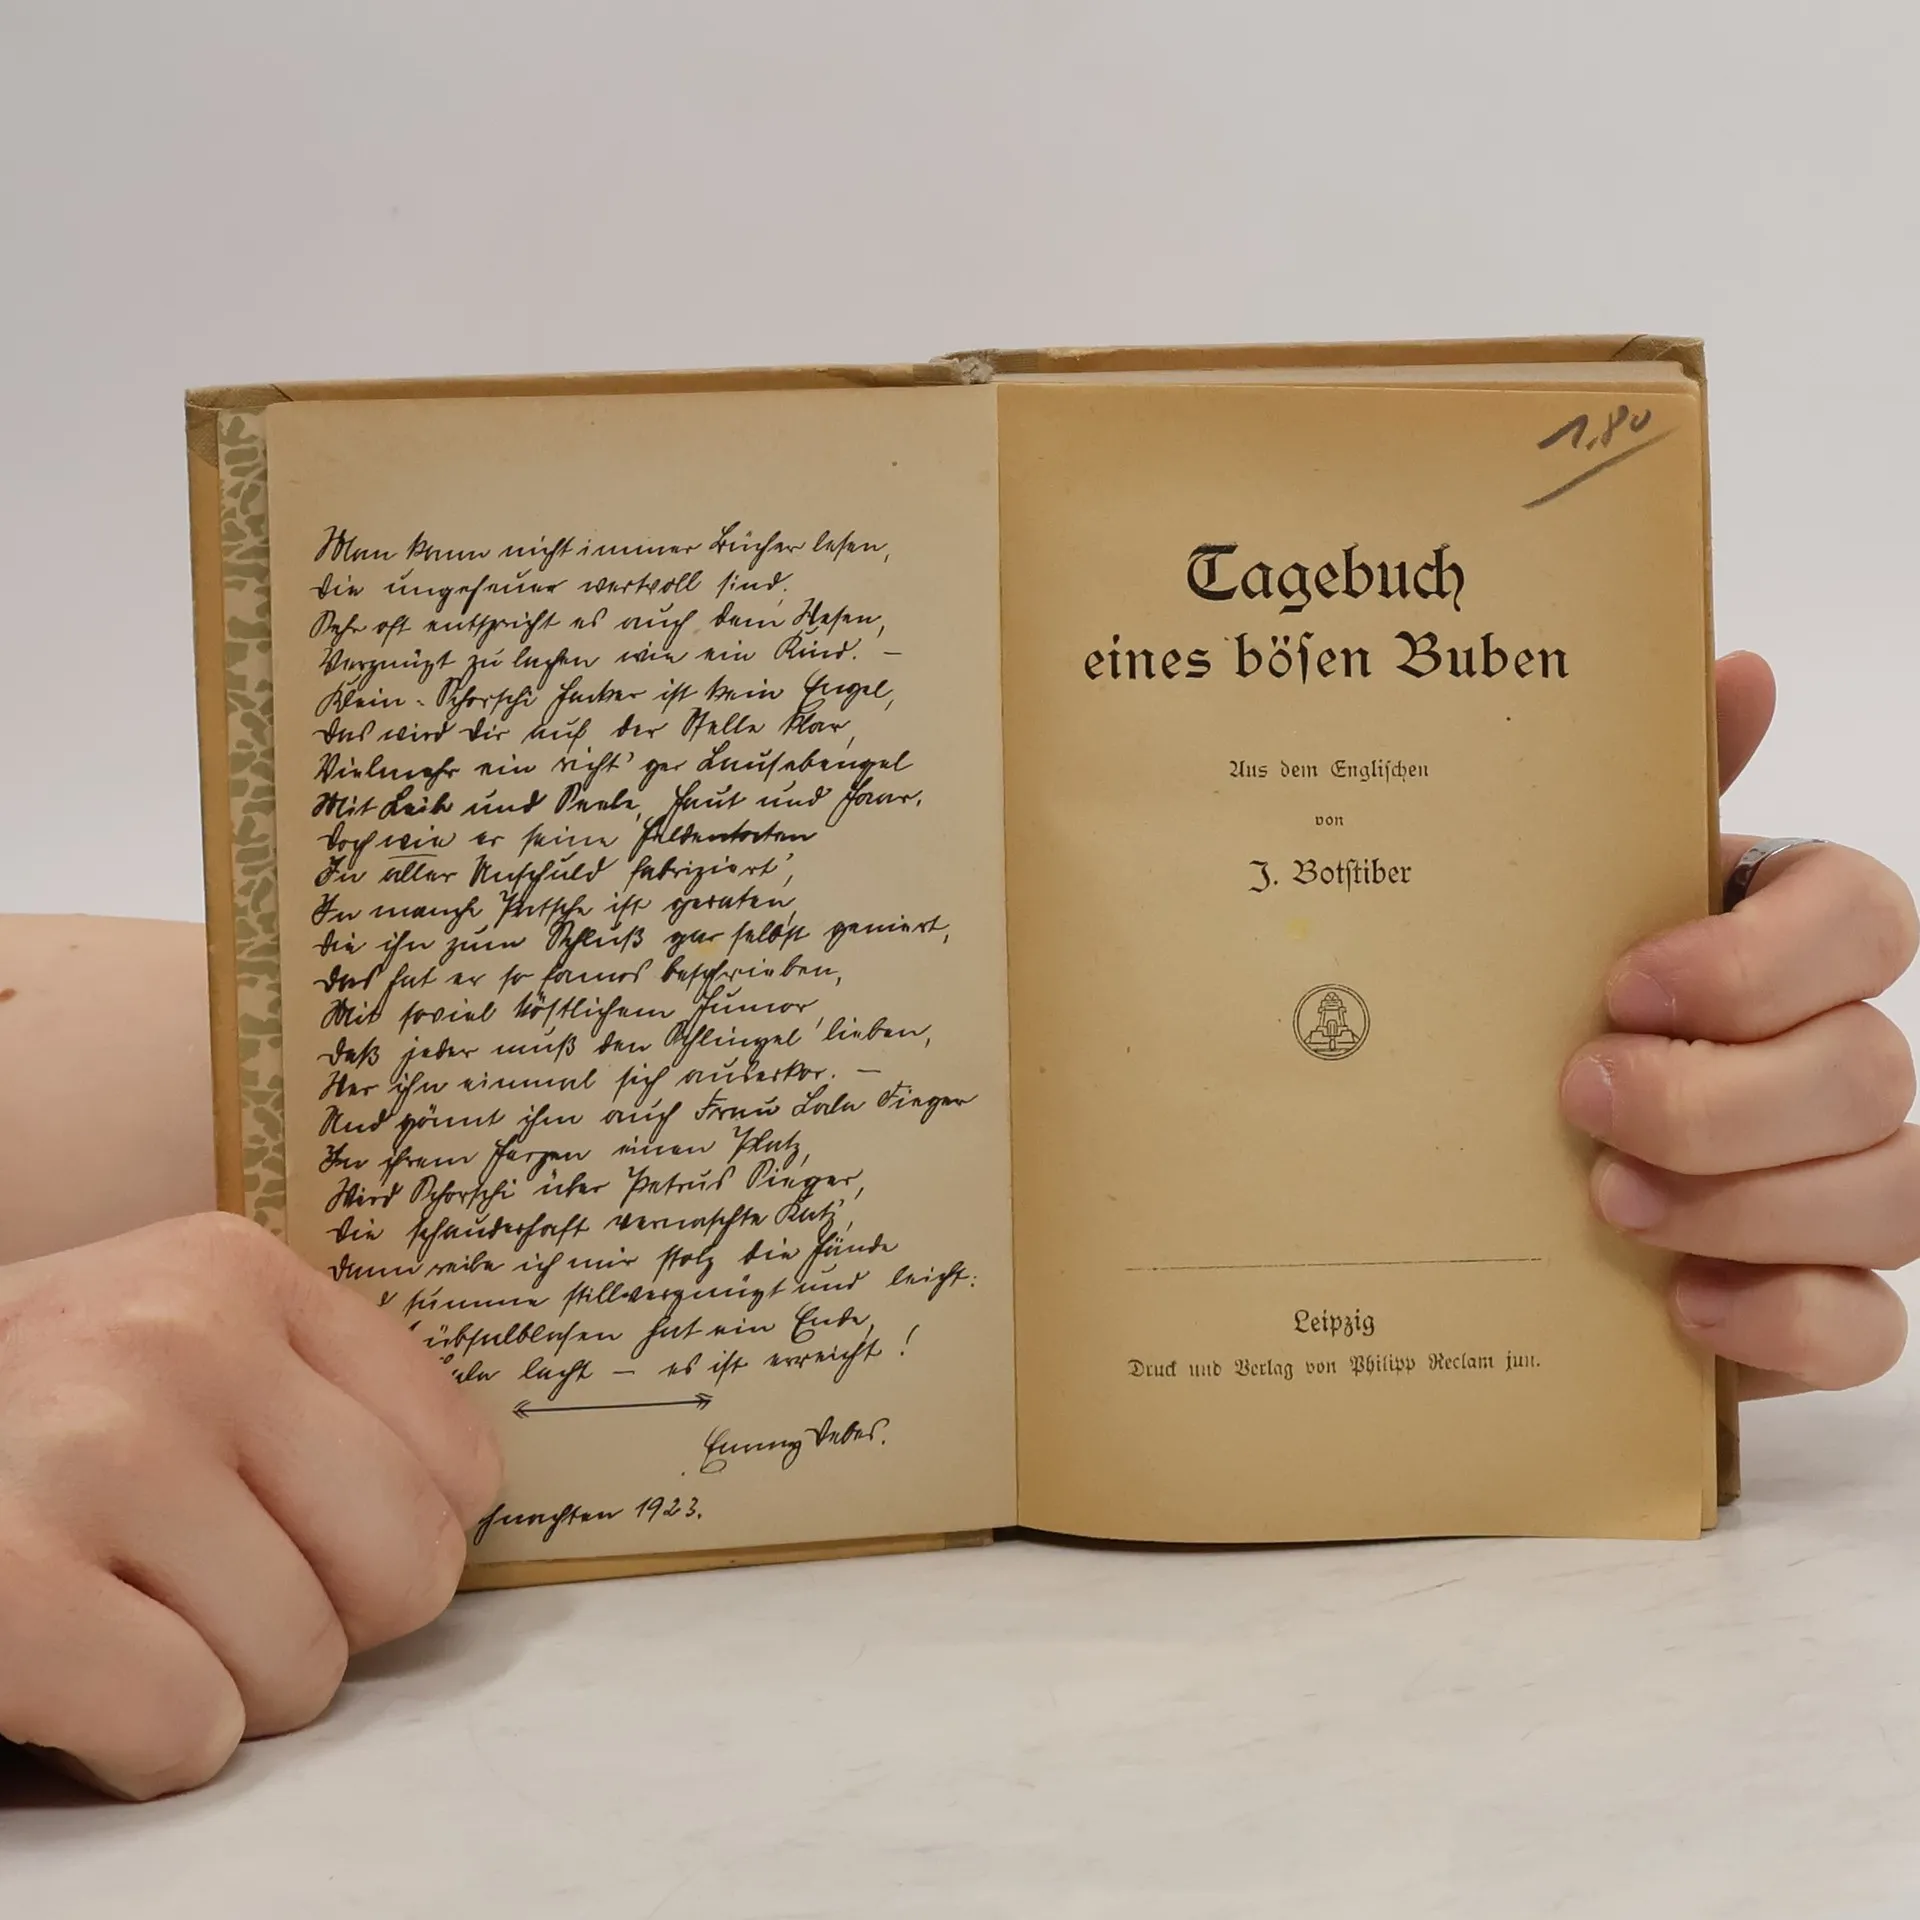 Man kann nicht immer Bücher lesen,
Die ungeheuer wertvoll sind.
Sehr oft entspricht es auch dem Wesen,
Vergnügt zu lachen wie ein Kind. –
Klein-Schorschi Hacker ist kein Engel,
Das wird Dir auf der Stelle klar,
Vielmehr ein richt'ger Lausebengel
Mit Leib und Seele, Haut und Haar.
Doch wie er seine Heldentaten
In aller Unschuld fabriziert,
In manche Patsche ist geraten,
Die ihn zum Schluß gar selbst geniert,
Das hat er so famos beschrieben,
Mit soviel köstlichem Humor,
Daß jeder muß den Schlingel lieben,
Wer ihn einmal sich auserkor. –
Und gönnt ihm auch Frau Lola Fieger
In ihrem Herzen einen Platz,
Wird Schorschi über Petrus Sieger,
Die schauderhaft vernaschte Katz',
Dann reibe ich mir stolz die Hände
summe stillvergnügt und leicht:
übsalblasen hat ein Ende,
lacht – es ist erreicht!
Emmy Debes.
hnachten 1923.
1.80
Tagebuch
eines böſen Buben
Aus dem Engliſchen
von
J. Botſtiber
Leipzig
Druck und Verlag von Philipp Reclam jun.